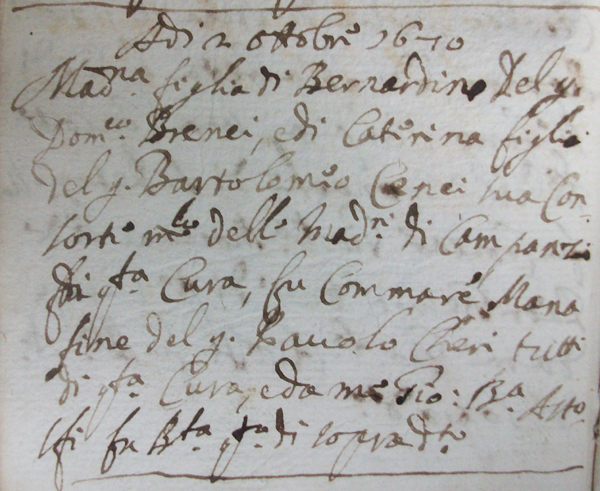 Adi 2 ottobre 1670
Mad.na figlia di Bernardino del q.
Dom.co Brenei, e di Caterina figlia
del q. Bartolomeo Cenei sua Con
sorte delle Mad.ni di Campanzi
di q.ta Cura, fu Commare Mana
fine del q. Pauolo Cheri tutti
di q.ta Cura, e da me Gio: B.a Asto
lfi fu B.ta q.ta di sopra d.ta